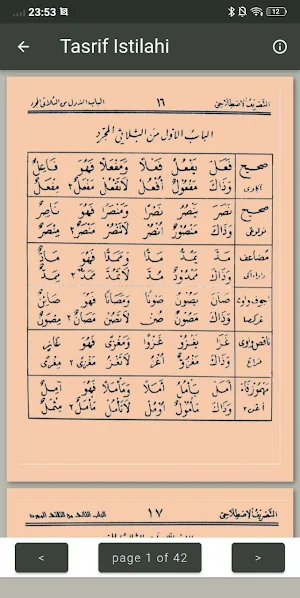 23:53
12
Tasrif Istilahi
التصريف الاصطلاحي ١٦ الباب الاول من الثلاثي المجرد
الباب الاول من الثلاثي المجرد
صحيح فَعَلَ يَفْعُلُ فَعْلًا وَمَفْعَلًا فَهُوَ فَاعِلٌ
وَذَاكَ مَفْعُوْلٌ اُفْعُلْ لَاتَفْعُلْ مَفْعَلٌ ٢ مِفْعَلٌ
صحيح نَصَرَ يَنْصُرُ نَصْرًا وَمَنْصَرًا فَهُوَ نَاصِرٌ
وَذَاكَ مَنْصُوْرٌ اُنْصُرْ لَاتَنْصُرْ مَنْصَرٌ ٢ مِنْصَرٌ
مضاعف مَدَّ يَمُدُّ مَدًّا وَمَمَدًّا فَهُوَ مَادٌّ
وَذَاكَ مَمْدُوْدٌ مُدَّ لَاتَمُدَّ مَمَدٌّ ٢
اجوف واوى صَانَ يَصُوْنُ صَوْنًا وَمَصَانًا فَهُوَ صَائِنٌ
وَذَاكَ مَصُوْنٌ صُنْ لَاتَصُنْ مَصَانٌ ٢ مِصْوَنٌ
ناقص واوى غَزَا يَغْزُوْ غَزْوًا وَمَغْزًى فَهُوَ غَازٍ
وَذَاكَ مَغْزُوٌّ اُغْزُ لَاتَغْزُ مَغْزًى ٢ مِغْزًى
مهموز فاء اَمَلَ يَأْمُلُ اَمَلًا وَمَأْمَلًا فَهُوَ اٰمِلٌ
وَذَاكَ مَأْمُوْلٌ اُوْمُلْ لَاتَأْمُلْ مَأْمَلٌ ٢ مِئْمَلٌ
التصريف الاصطلاحي ١٧
<
page 1 of 42
>